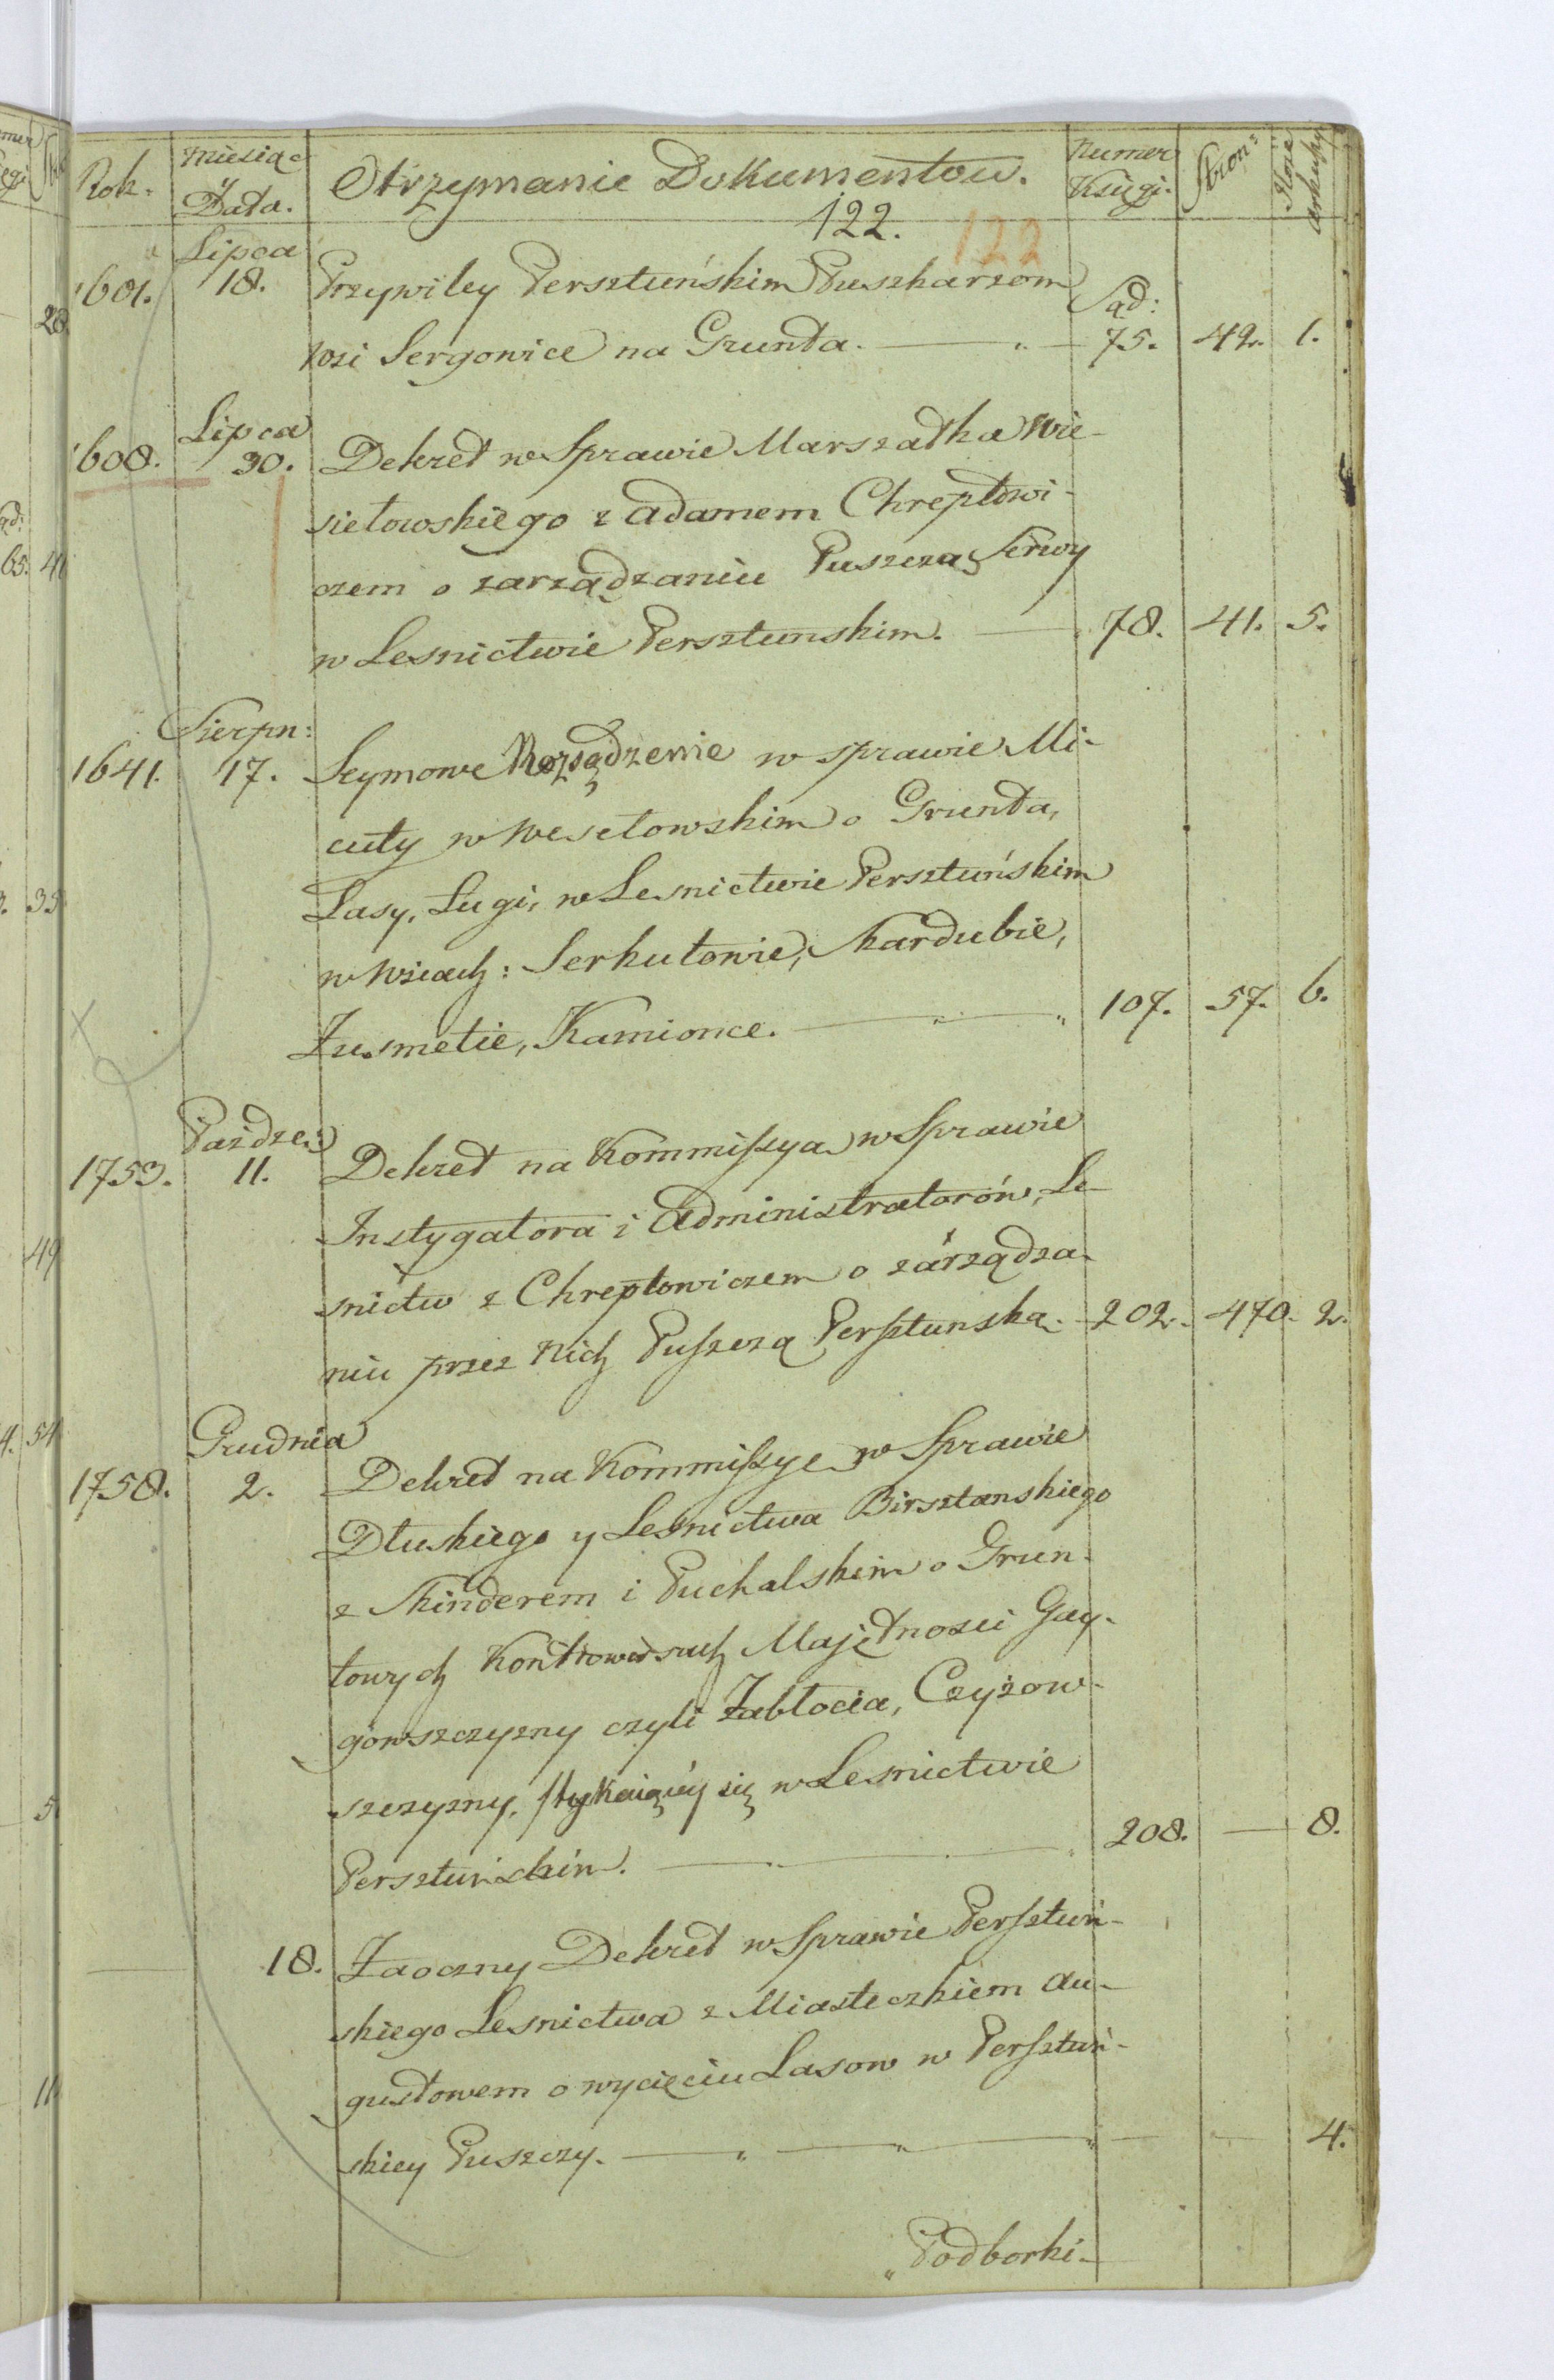 Rok. Miesiąc y Data. Otrzymanie Dokumentow. Numer Księgi. Stron: Ilość arkuszy
122. 122
1601. Lipca 18. Przywiley Persztuńskim Puszkarzom
wsi Sergowice na Grunta. Sąd: 75. 42. 1.
1608. Lipca 30. Dekret w Sprawie Marszałka Wie-
siełowskiego z Adamem Chreptowi-
czem o zarządzaniu Puszczą Serwy
w Lesnictwie Persztunskim. 78. 41. 5.
1641. Sierpn: 17. Seymowe Rozsądzenie w sprawie Mi-
cuty w Wesełowskim o Grunta,
Lasy, Ługi, w Lesnictwie Persztuńskim
w Wsiach: Serkutowie, Skardubie,
Zusmetie, Kamionce. 107. 57. 6.
1753. Pazdze: 11. Dekret na Kommissya w Sprawie
Instygatora i Administratorów, Le-
snictw z Chreptowiczem o zarządza-
niu przez nich Puszczą Persztunską. 202. 470. 2.
1758. Grudnia 2. Dekret na Kommissye w Sprawie
Dłuskiego y Lesnictwa Birsztanskiego
z Skinderem i Puchalskim o Grun-
towych Kontrowersach Majętnosci Gay-
gowszczyzny czyli Zabłocia, Czyżow-
szczyzny, stykaiącéy się w Lesnictwie
Persztuńskim. 208. — 8.
— 18. Zaoczny Dekret w Sprawie Persztuń-
skiego Lesnictwa z Miasteczkiem Au-
gustowem o wycięciu Lasow w Persztuń-
skiey Puszczy. — — 4.
Podborki-